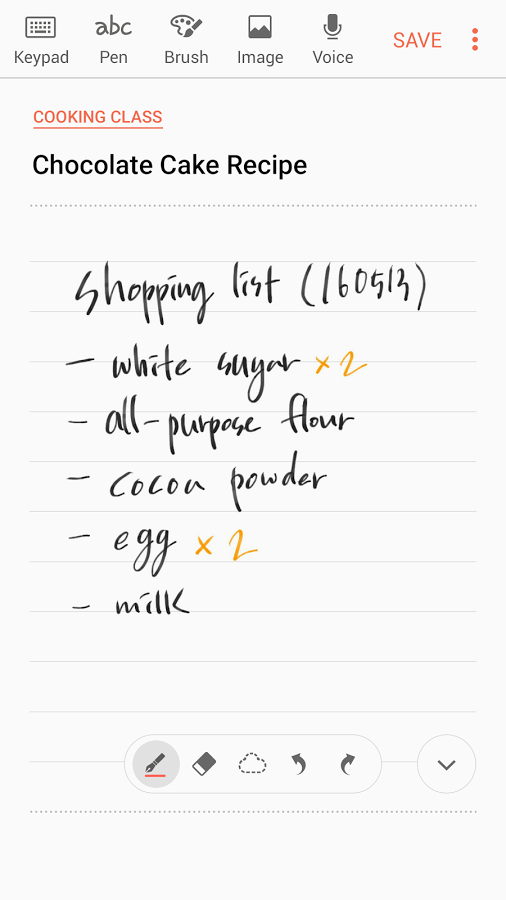 Keypad abc Pen Brush Image Voice SAVE
COOKING CLASS
Chocolate Cake Recipe
shopping list (160513)
- white sugar ×2
- all-purpose flour
- cocoa powder
- egg ×2
- milk